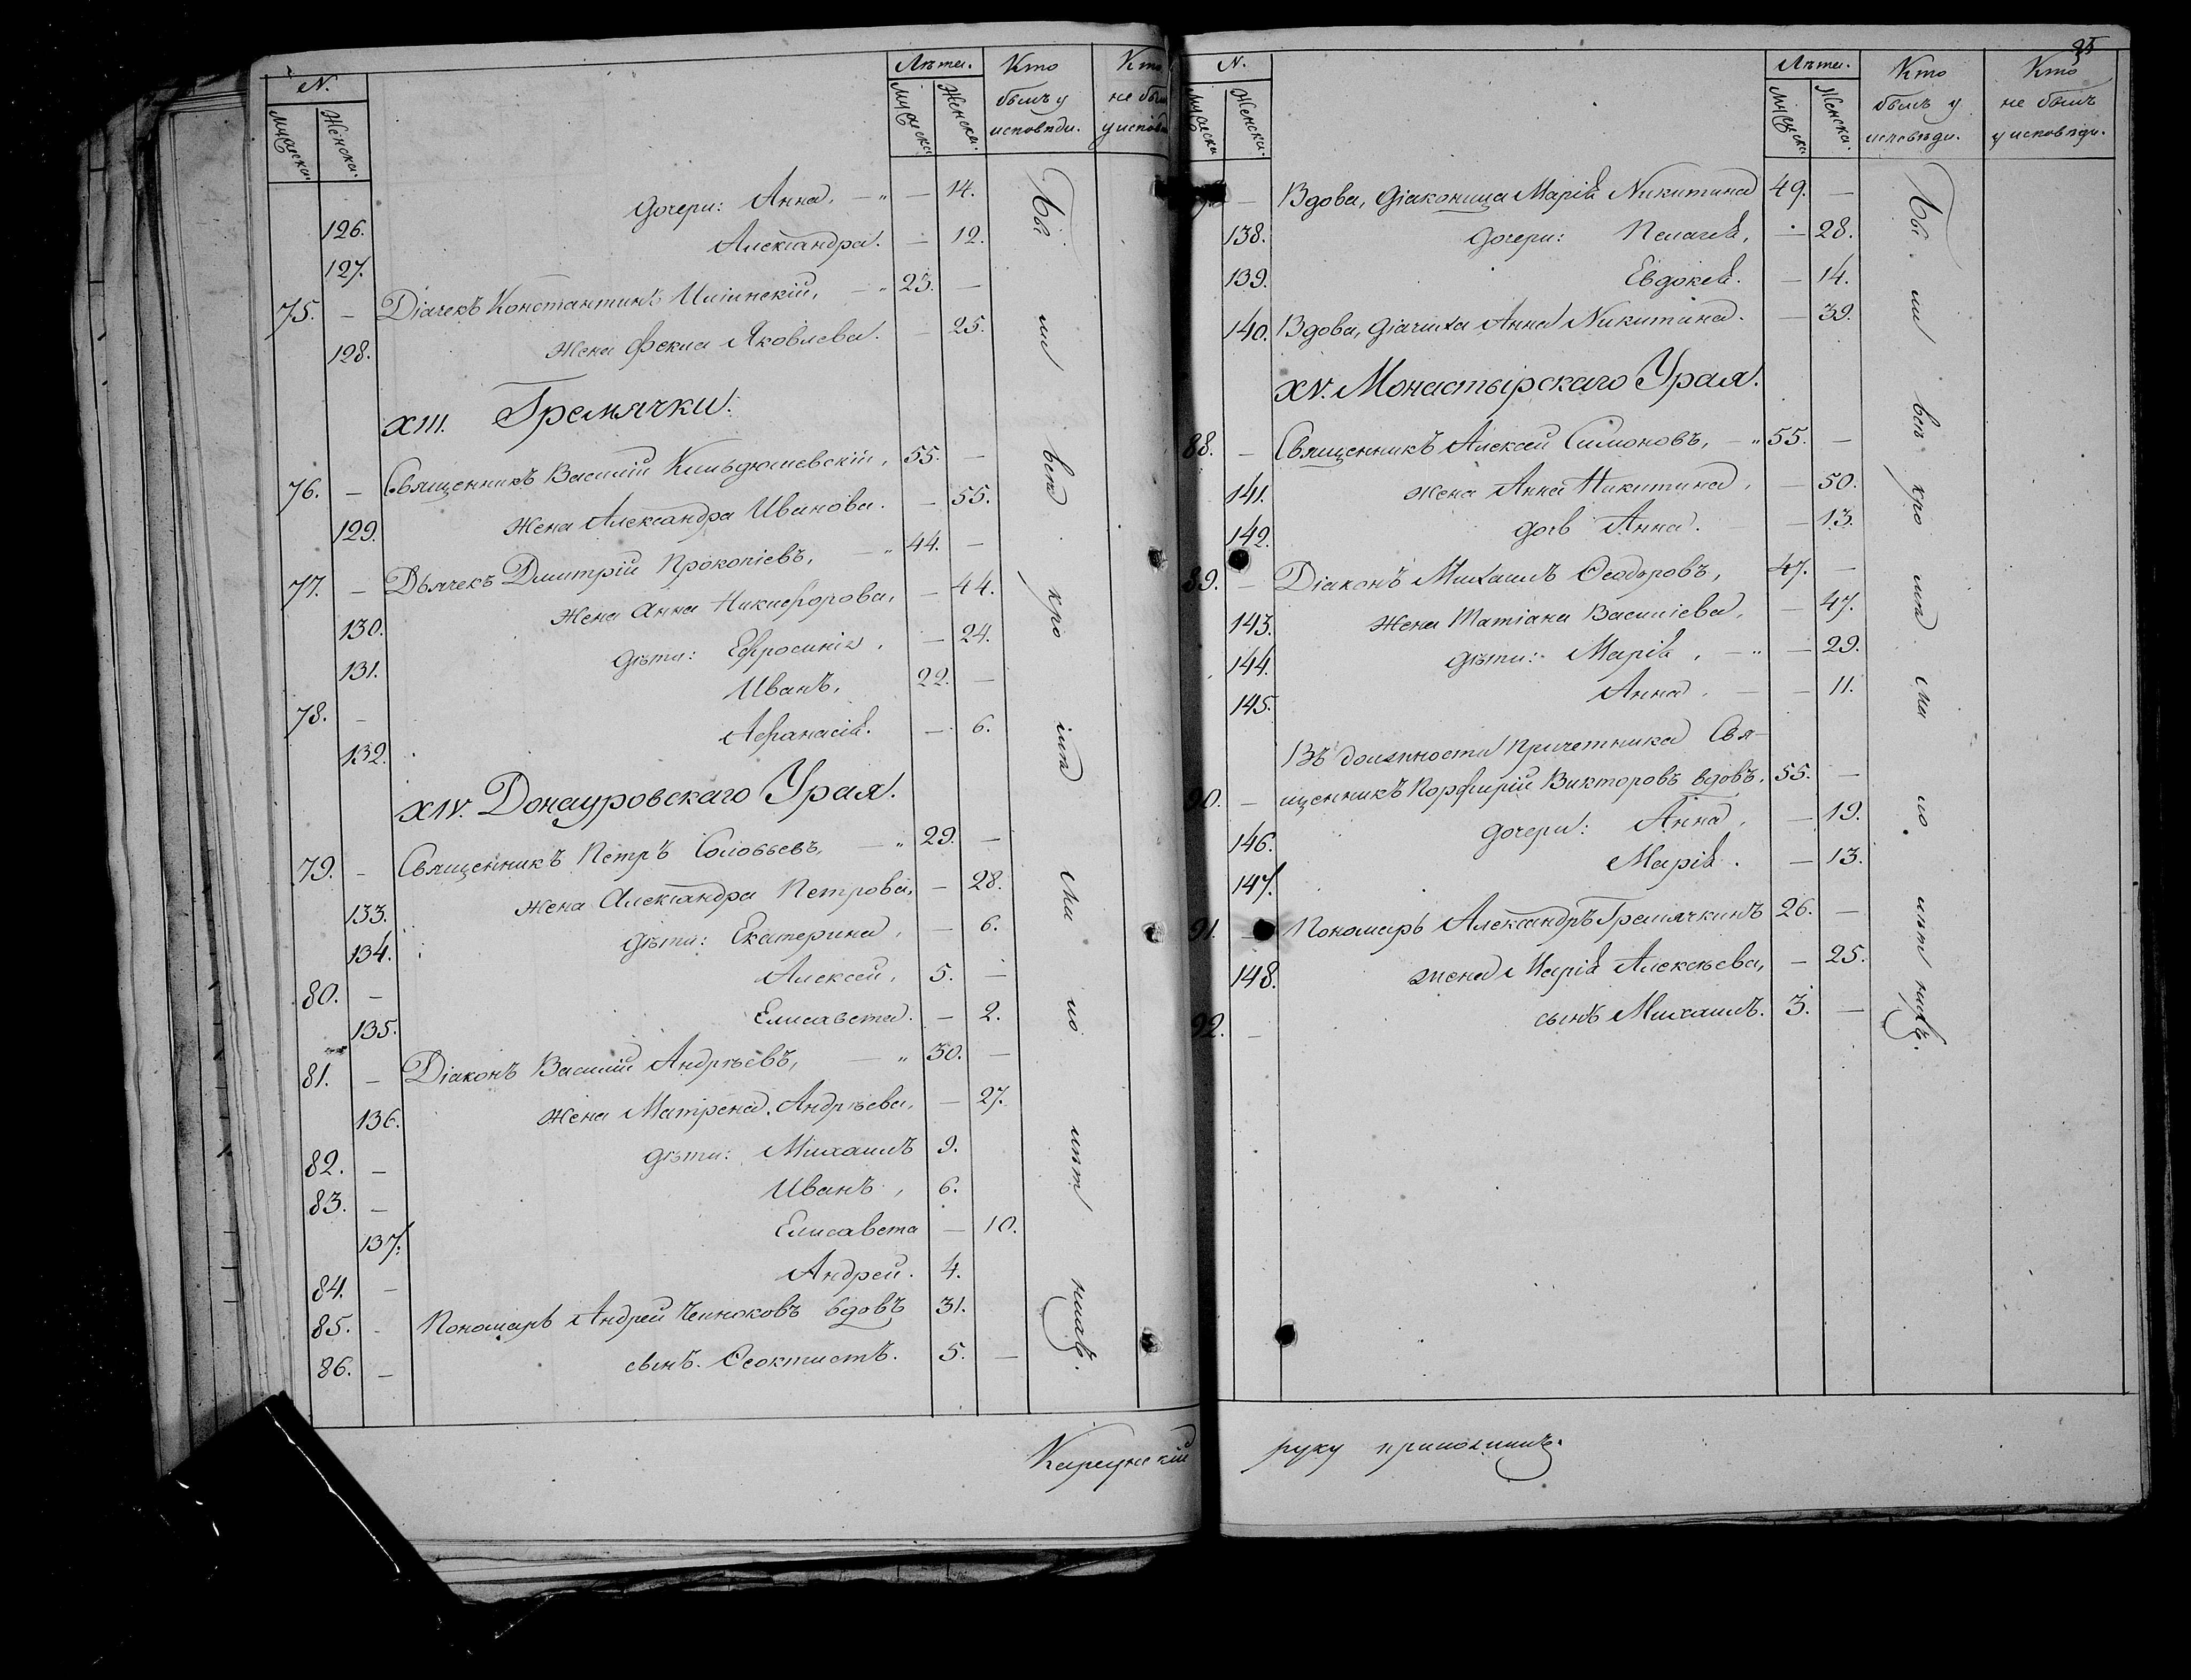 N.
Лѣта.
Кто
Кто
Мужеска.
Женска.
Мужеска
Женска.
былъ у
исповѣди.
не былъ
у исповѣди
126. дочери: Анна, — 14.
127. Александра. — 12.
75. — Діачекъ Константинъ Илiинскій, 23. —
128. жена Фекла Яковлева. — 25.
XIII. Гремячки.
76. — Священникъ Василій Кильдюшевскій, 55. —
129. жена Александра Иванова. — 55.
77. — Дьячекъ Дмитрій Прокопіевъ, 44. —
130. жена Анна Никифорова, — 44.
131. дѣти: Ефросинія, — 24.
78. — Иванъ, 22. —
132. Афанасія. — 6.
XIV. Донауровскаго Урая.
79. — Священникъ Петръ Соловьевъ, 29. —
133. жена Александра Петрова, — 28.
134. дѣти: Екатерина, — 6.
80. — Алексей, 5. —
135. Елисавета. — 2.
81. — Діаконъ Василій Андрѣевъ, 30. —
136. жена Матрена Андрѣева, — 27.
82. — дѣти: Михаилъ 9.
83. — Иванъ, 6.
137. Елисавета — 10.
84. — Андрей. 4.
85. — Пономарь Андрей вдовъ 31.
86. — сынъ Ѳеоктистъ. 5. —
Бы ли всѣ кро
руку приложилъ.
N.
Лѣта.
Кто
Кто
Мужеска
Женска.
Мужеска
Женска.
былъ у
исповѣди.
не былъ
у исповѣди.
— Вдова, діаконица Марія Никитина 49. —
138. дочери: Пелагея, — 28.
139. Евдокея. — 14.
140. Вдова, діачиха Анна Никитина. — 39.
XV. Монастырскаго Урая.
88. — Священникъ Алексей Симоновъ, 55. —
141. жена Анна Никитина, — 50.
142. дочь Анна. — 13.
89. — Діаконъ Михаилъ Ѳеодоровъ, 47. —
143. жена Матіана Василіева, — 47.
144. дѣти: Марія, — 29.
145. Анна. — 11.
Въ должности причетника Свя-
90. — щенникъ Порфирій Викторовъ вдовъ. 55. —
146. дочери: Анна, — 19.
147. Марія. — 13.
91. — Пономарь Александръ Гремячкинъ 26. —
148. жена Марія Алексѣева, — 25.
92. — сынъ Михаилъ. 3. —
Бы ли всѣ кро мѣ ма ло лѣт нихъ.